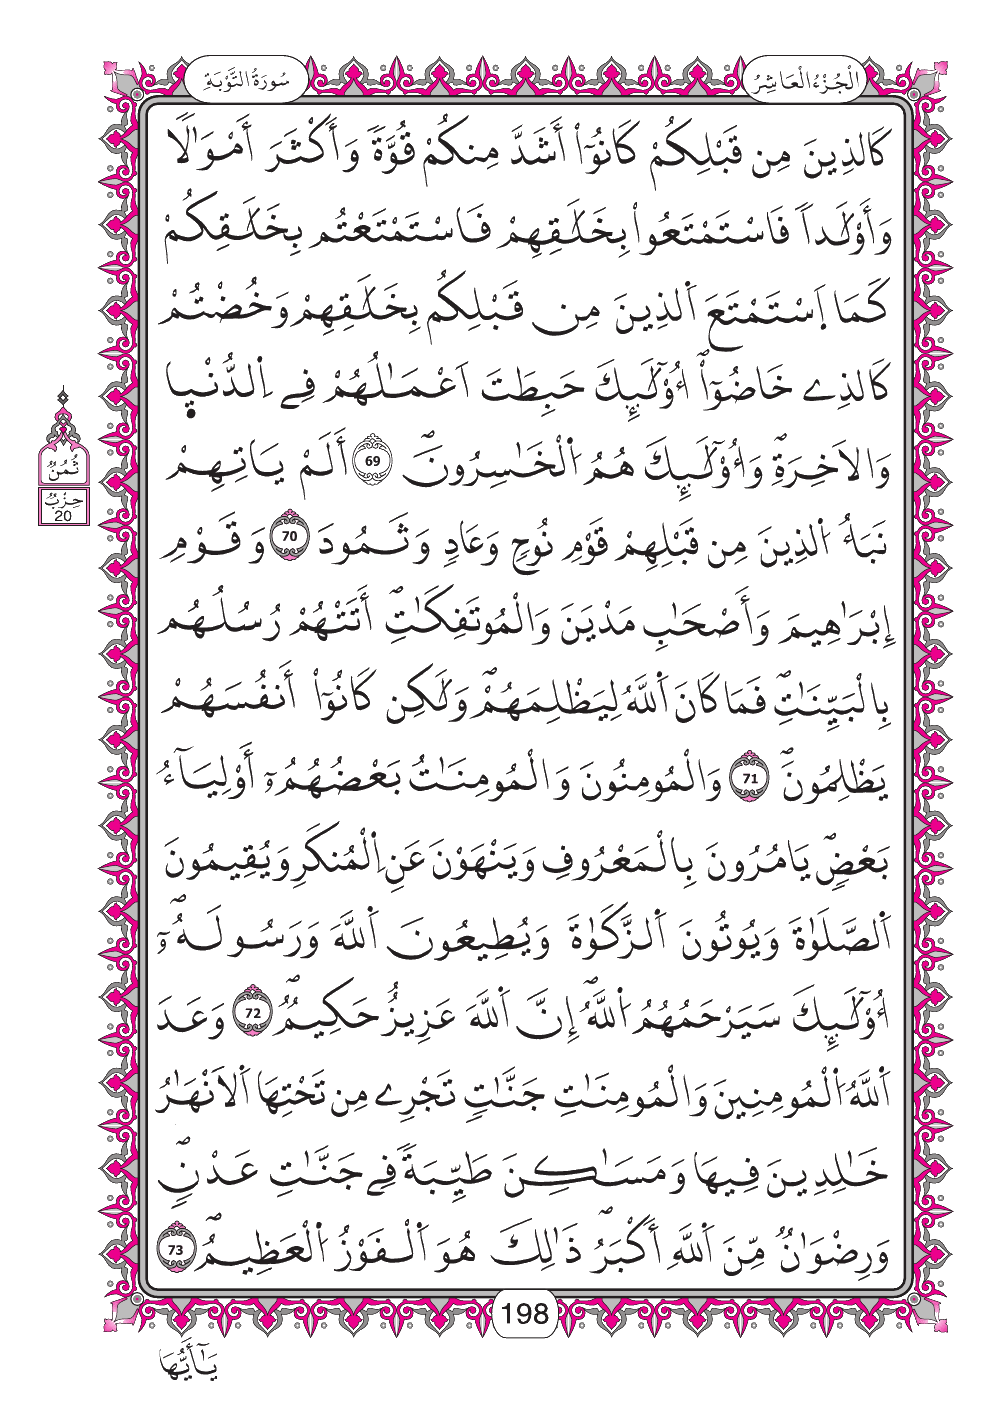 سُورَةُ التَّوْبَةِ
الْجُزْءُ الْعَاشِرُ
كَالذِينَ مِن قَبْلِكُمْ كَانُوٓاْ أَشَدَّ مِنكُمْ قُوَّةٗ وَأَكْثَرَ أَمْوَٰلاٗ
وَأَوْلَٰداٗ فَاسْتَمْتَعُواْ بِخَلَٰقِهِمْ فَاسْتَمْتَعْتُم بِخَلَٰقِكُمْ
كَمَا اَسْتَمْتَعَ اَلذِينَ مِن قَبْلِكُم بِخَلَٰقِهِمْ وَخُضْتُمْ
كَالذِے خَاضُوٓاْۖ أُوْلَٰٓئِكَ حَبِطَتَ اَعْمَٰلُهُمْ فِے اِلدُّنْيٜا
وَالاَخِرَةِۖ وَأُوْلَٰٓئِكَ هُمُ اُلْخَٰسِرُونَۖ 69 أَلَمْ يَاتِهِمْ
نَبَأُ اُلذِينَ مِن قَبْلِهِمْ قَوْمِ نُوحٖ وَعَادٖ وَثَمُودَ 70 وَقَوْمِ
إِبْرَٰهِيمَ وَأَصْحَٰبِ مَدْيَنَ وَالْمُوتَفِكَٰتِۖ أَتَتْهُمْ رُسُلُهُم
بِالْبَيِّنَٰتِۖ فَمَا كَانَ اَللَّهُ لِيَظْلِمَهُمْۖ وَلَٰكِن كَانُوٓاْ أَنفُسَهُمْ
يَظْلِمُونَۖ 71 وَالْمُومِنُونَ وَالْمُومِنَٰتُ بَعْضُهُمُۥٓ أَوْلِيَآءُ
بَعْضٖۖ يَامُرُونَ بِالْمَعْرُوفِ وَيَنْهَوْنَ عَنِ اِلْمُنكَرِ وَيُقِيمُونَ
اَلصَّلَوٰةَ وَيُوتُونَ اَلزَّكَوٰةَ وَيُطِيعُونَ اَللَّهَ وَرَسُولَهُۥٓۖ
أُوْلَٰٓئِكَ سَيَرْحَمُهُمُ اُللَّهُۖ إِنَّ اَللَّهَ عَزِيزٌ حَكِيمٞۖ 72 وَعَدَ
اَللَّهُ اُلْمُومِنِينَ وَالْمُومِنَٰتِ جَنَّٰتٖ تَجْرِے مِن تَحْتِهَا اَلَانْهَٰرُ
خَٰلِدِينَ فِيهَا وَمَسَٰكِنَ طَيِّبَةٗ فِے جَنَّٰتِ عَدْنٖۖ
وَرِضْوَٰنٞ مِّنَ اَللَّهِ أَكْبَرُۖ ذَٰلِكَ هُوَ اَلْفَوْزُ اُلْعَظِيمُۖ 73
ثُمُنٌ
حِزْبٌ
20
198
يَٰٓأَيُّهَا